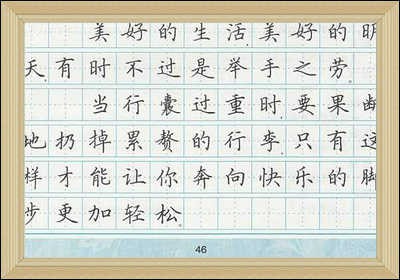 美好的生活.美好的明
天.有时不过是举手之劳.
当行囊过重时.要果断
地扔掉累赘的行李.只有这
样才能让你奔向快乐的脚
步更加轻松.
46